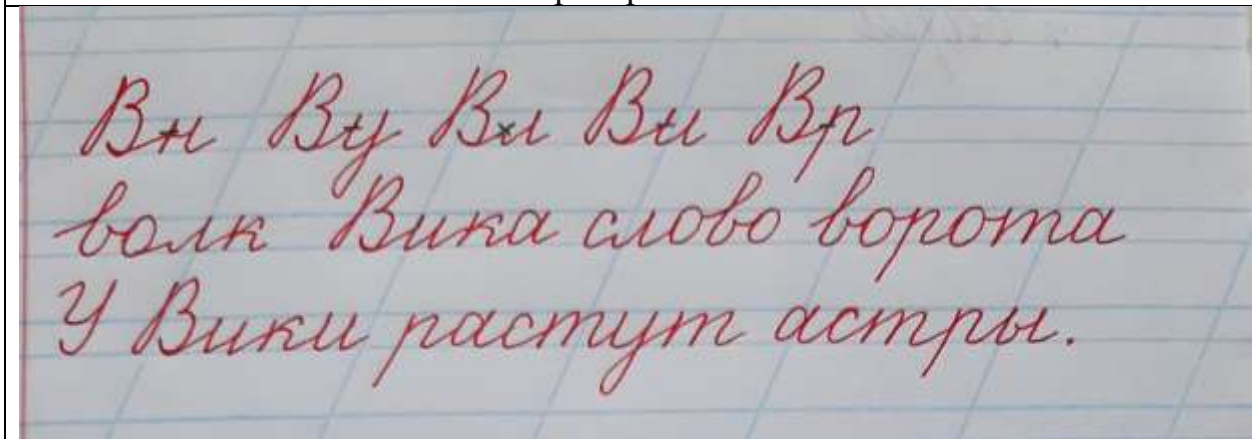 Вн Ву Вл Ви Вр
волк Вика слово ворота
У Вики растут астры.